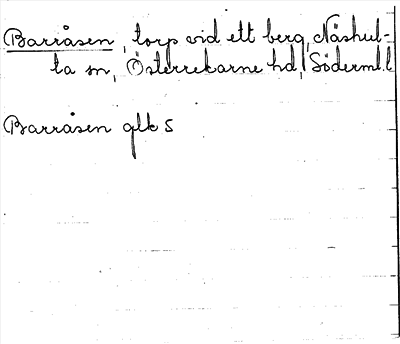 Barråsen, torp vid ett berg, Näshul-
ta sn, Österrekarne hd, Söderml.l
Barråsen glk s